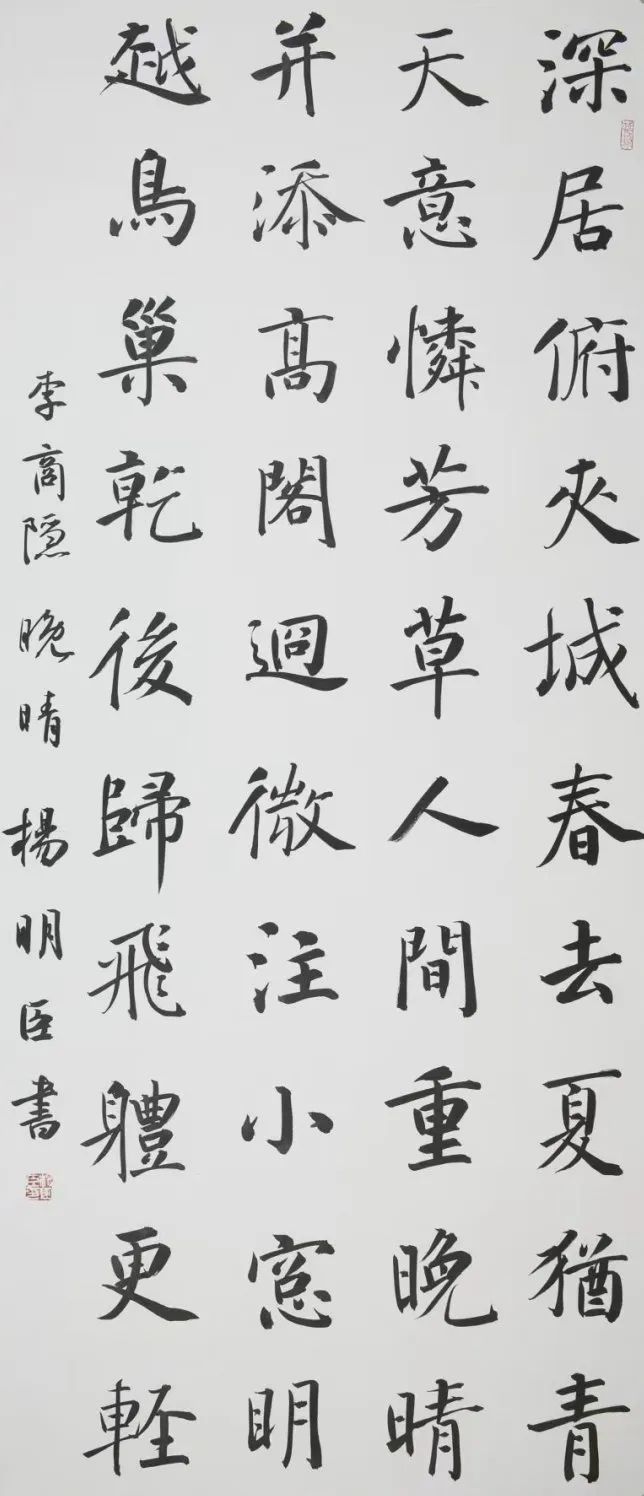 深居俯夾城春去夏猶青
天意憐芳草人間重晚晴
并添髙閣迥微注小窓明
越鳥巢乾後歸飛體更輕
李商隐 晚晴 楊明臣書